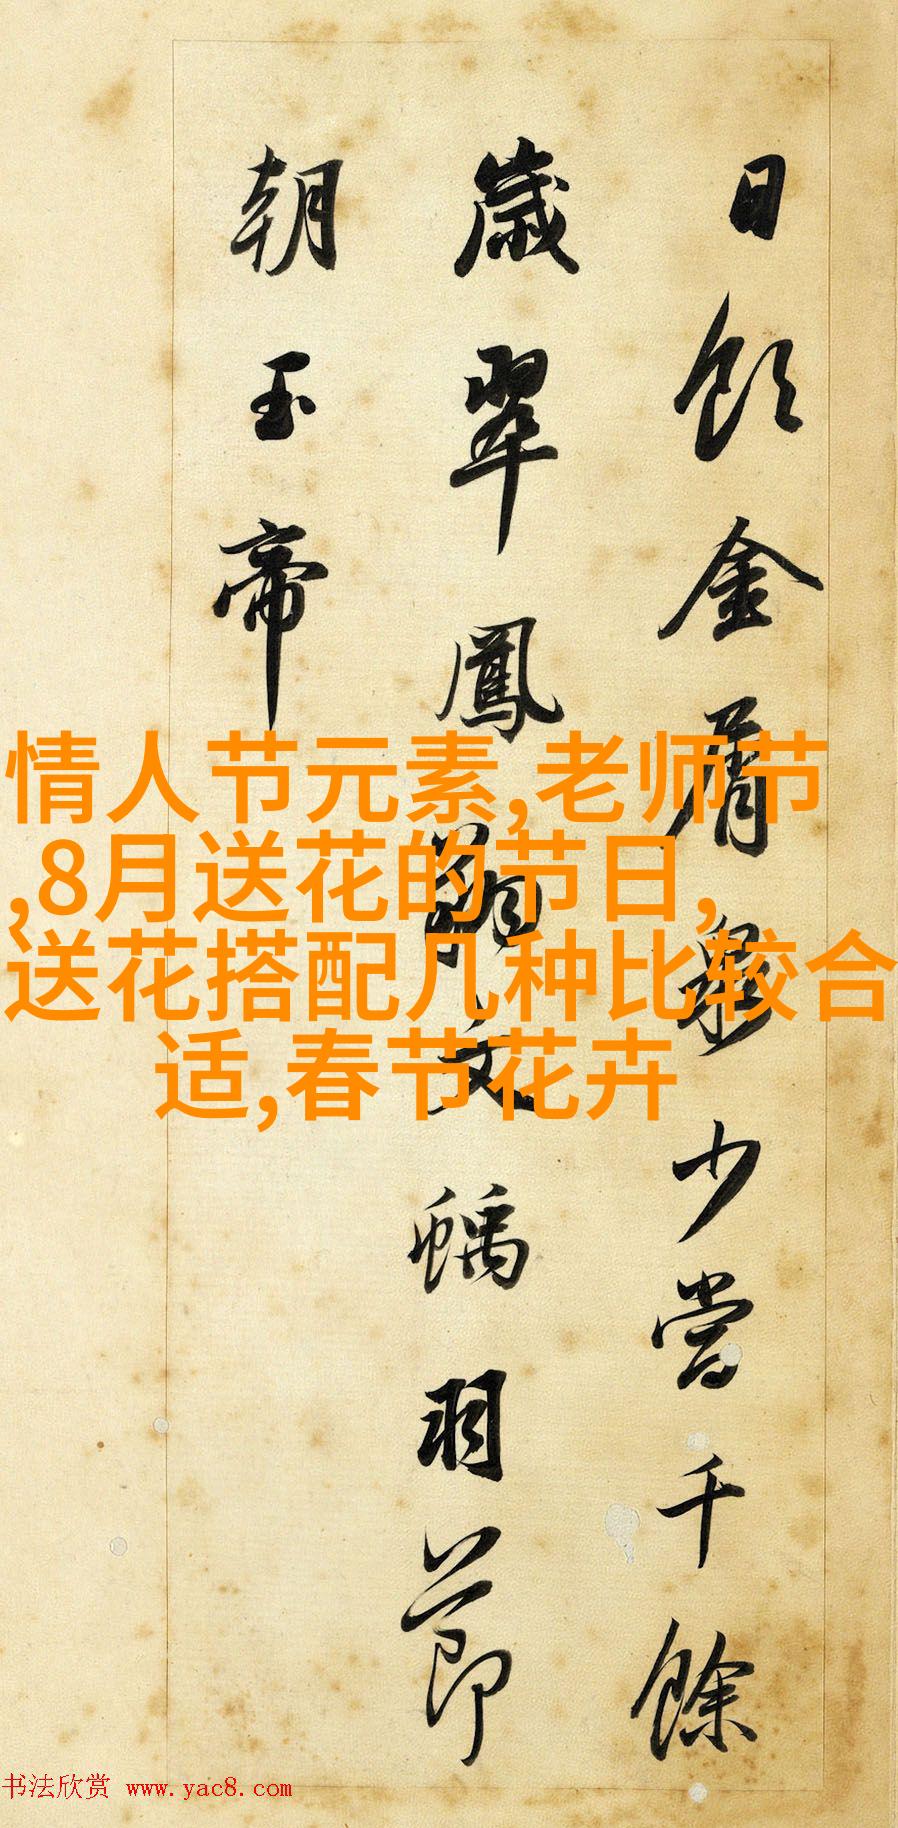 日飲金屑泉少當千餘
歲翠鳳翔文螭羽節
朝玉帝
情人节元素,老师节
,8月送花的节日,
送花搭配几种比较合
适,春节花卉
书法欣赏 www.yac8.com